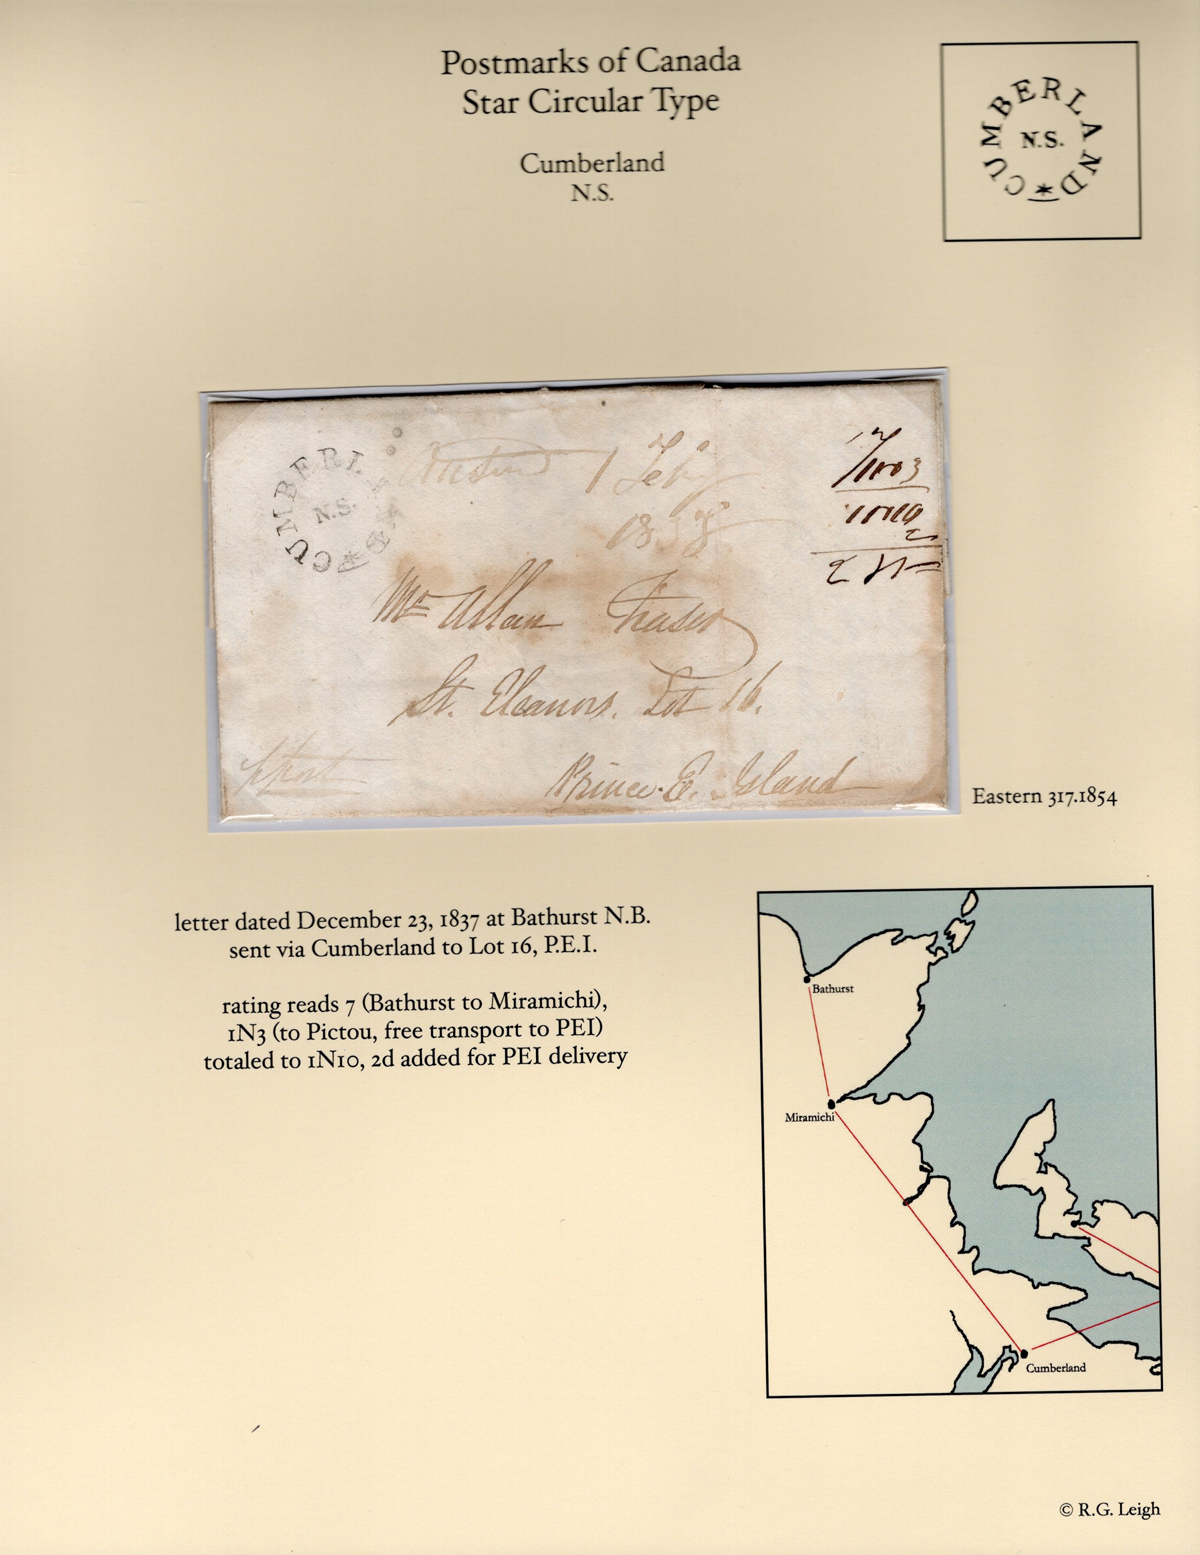 Postmarks of Canada
Star Circular Type
Cumberland
N.S.
CUMBERLAND
N.S.
CUMBERLAND
N.S.
1 Feby
1838
7
1N3
1N10
2
Mr Allan Fraser
St. Eleanors. Lot 16.
Prince E. Island
Eastern 317.1854
letter dated December 23, 1837 at Bathurst N.B.
sent via Cumberland to Lot 16, P.E.I.
rating reads 7 (Bathurst to Miramichi),
1N3 (to Pictou, free transport to PEI)
totaled to 1N10, 2d added for PEI delivery
Bathurst
Miramichi
Cumberland
© R.G. Leigh